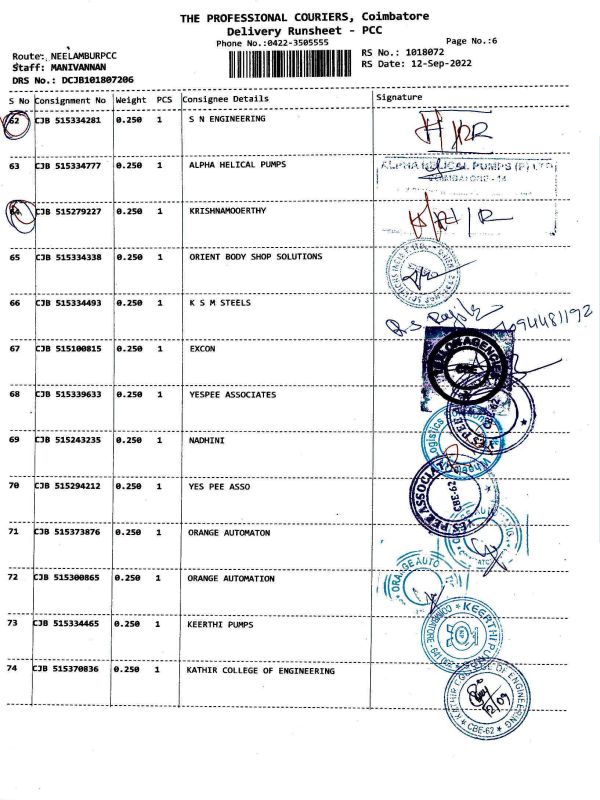 THE PROFESSIONAL COURIERS, Coimbatore
Delivery Runsheet - PCC
Phone No.:0422-3505555
Page No.:6
Route: NEELAMBURPCC
RS No.: 1018072
Staff: MANIVANNAN
RS Date: 12-Sep-2022
DRS No.: DCJB101807206
S No Consignment No Weight PCS Consignee Details Signature
62 CJB 515334281 0.250 1 S N ENGINEERING
63 CJB 515334777 0.250 1 ALPHA HELICAL PUMPS
ALPHA HELICAL PUMPS (P) LTD
COIMBATORE - 14
64 CJB 515279227 0.250 1 KRISHNAMOOERTHY
65 CJB 515334338 0.250 1 ORIENT BODY SHOP SOLUTIONS
66 CJB 515334493 0.250 1 K S M STEELS
67 CJB 515100815 0.250 1 EXCON
CBE
68 CJB 515339633 0.250 1 YESPEE ASSOCIATES
YES PEE
CBE-62
69 CJB 515243235 0.250 1 NADHINI
Logistics
70 CJB 515294212 0.250 1 YES PEE ASSO
YES PEE ASSOCIAT
CBE-62
71 CJB 515373876 0.250 1 ORANGE AUTOMATON
72 CJB 515300865 0.250 1 ORANGE AUTOMATION
ORANGE AUTO
73 CJB 515334465 0.250 1 KEERTHI PUMPS
KEERTHI PU
COIMBATORE
74 CJB 515370836 0.250 1 KATHIR COLLEGE OF ENGINEERING
KATHIR COLLEGE OF ENGINEERING
12/09
CBE-62